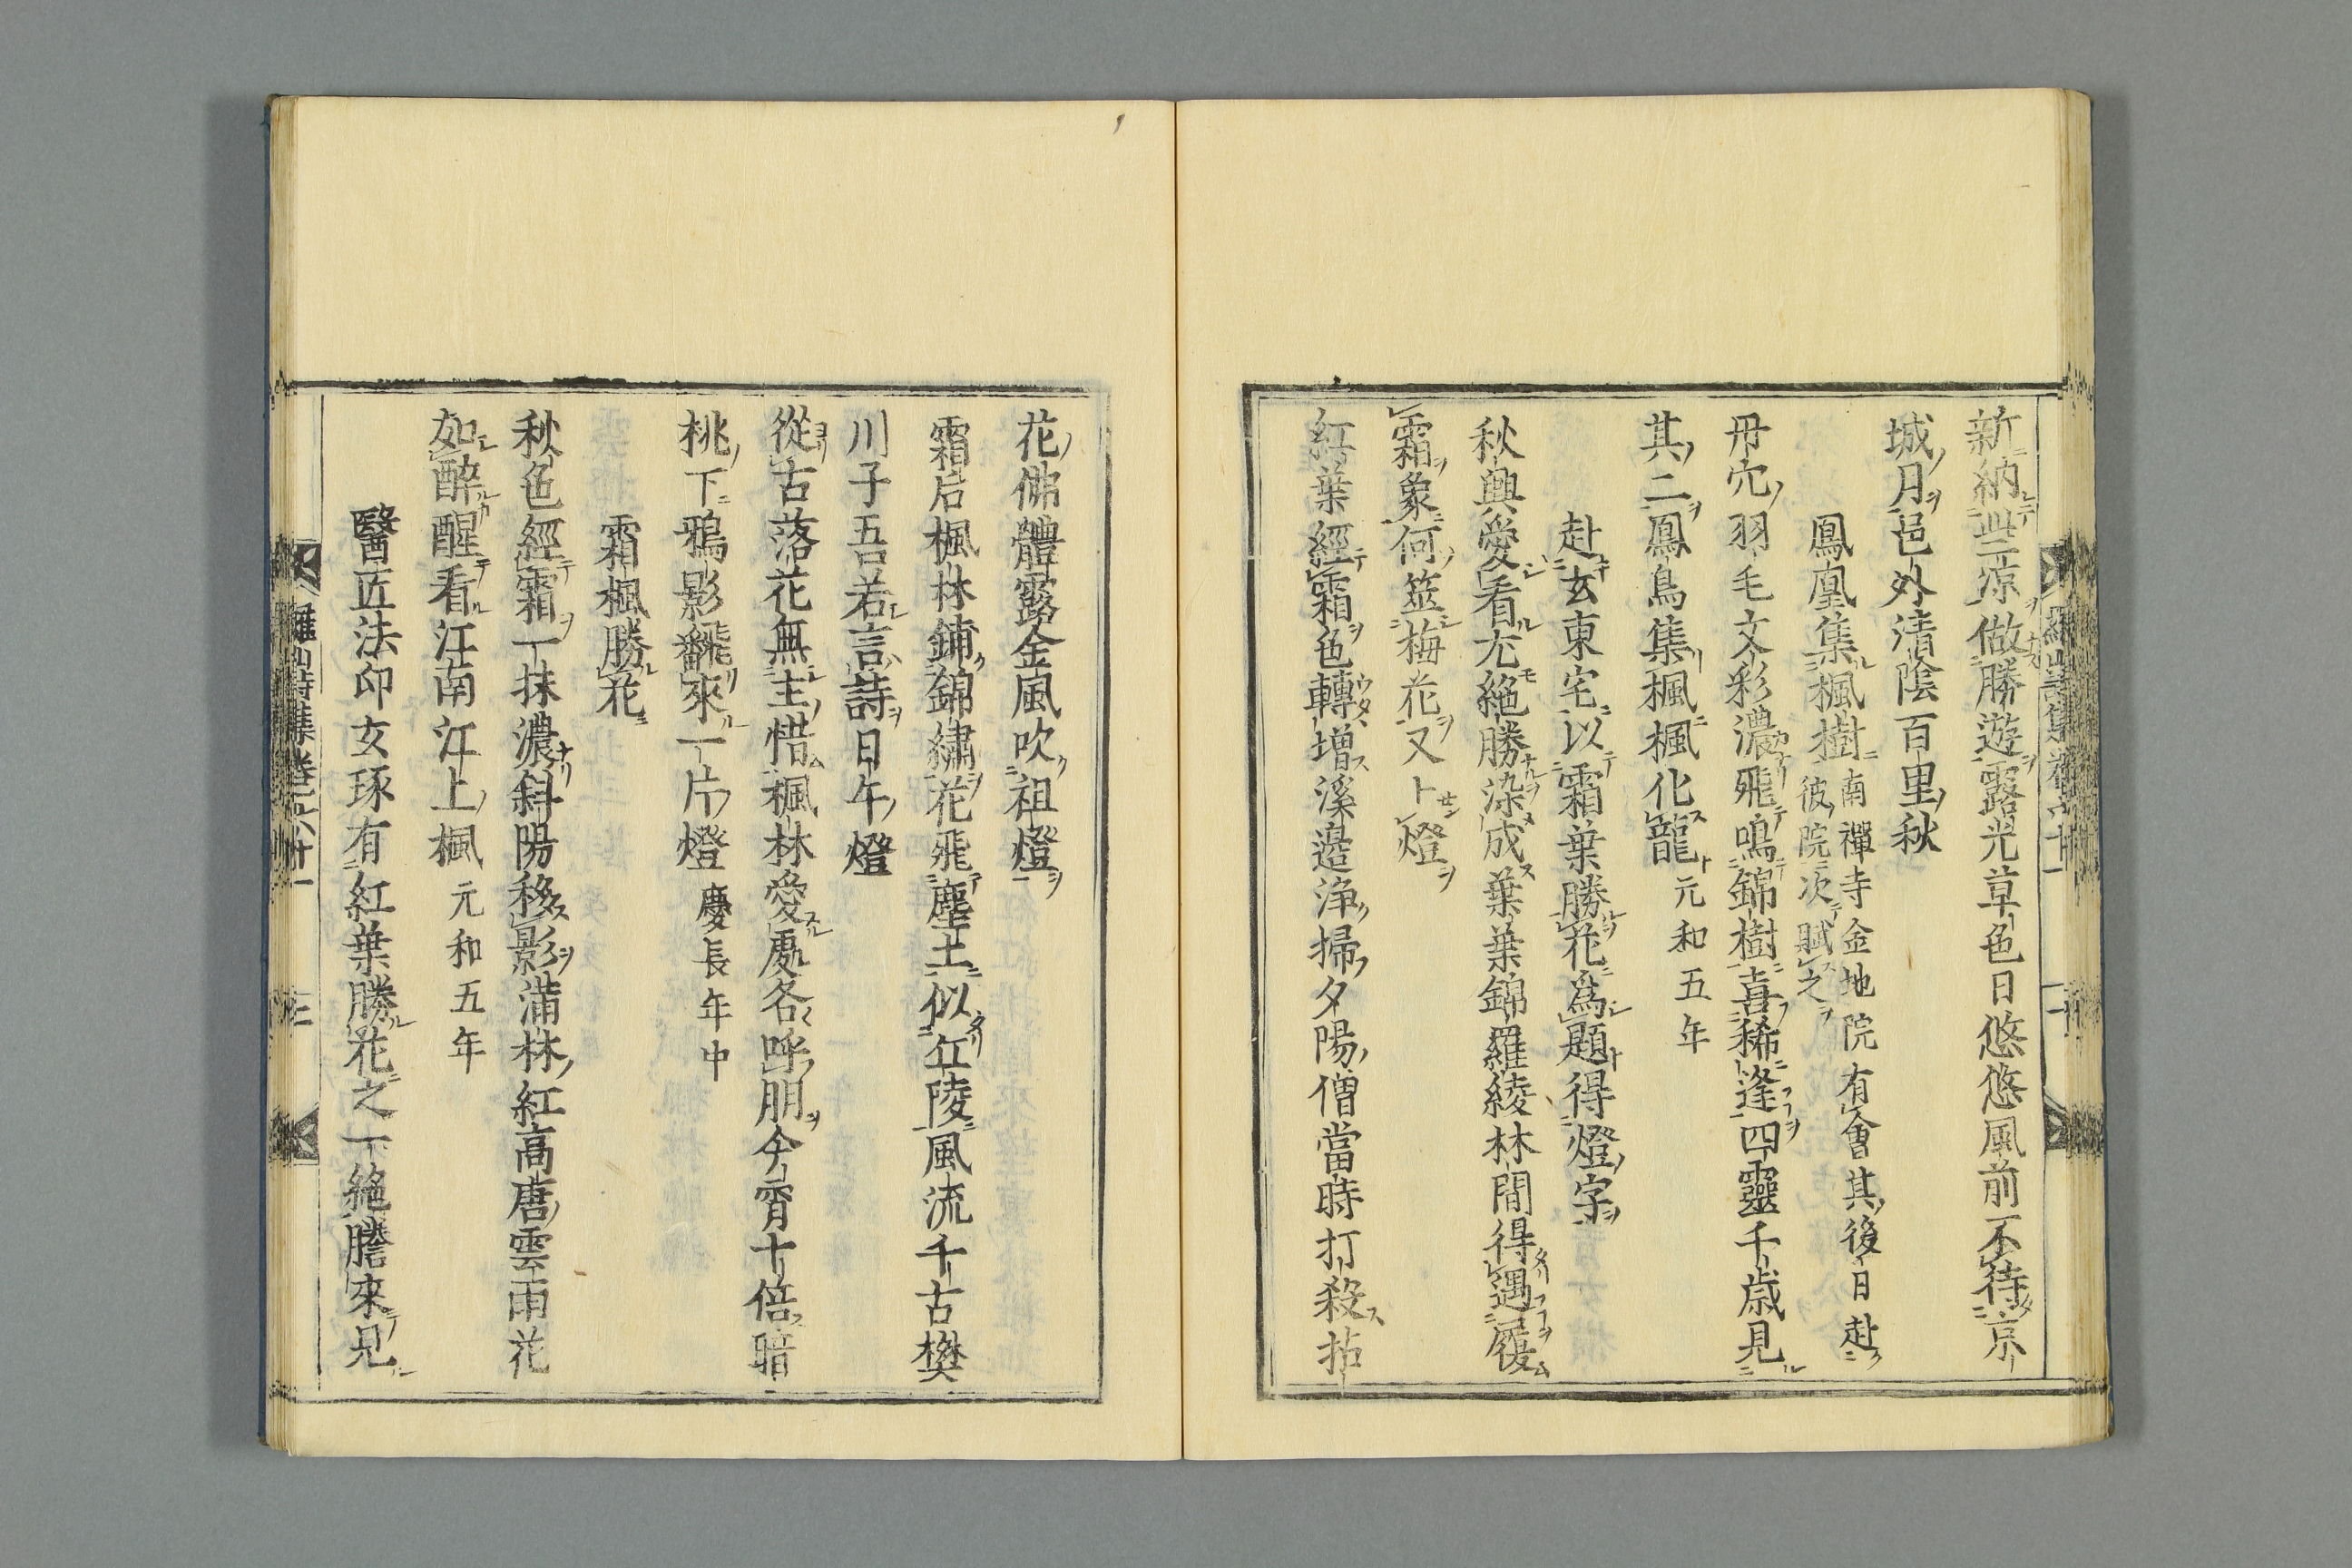 新納些凉做勝遊露光草色日悠悠風前不待京
城月邑外清陰百里秋
鳳凰集楓樹
南禪寺金地院有會其後日赴
彼院次賦之
丹穴羽毛文彩濃飛鳴錦樹喜稀逢四靈千歳見
其二鳳鳥集楓楓化龍 元和五年
赴玄東宅以霜葉勝花爲題得燈字
秋興愛看尤絶勝染成葉葉錦羅綾林間得遇履
霜象何筮梅花又卜燈
紅葉經霜色轉増溪邉浄掃夕陽僧當時打殺拈
花佛體露金風吹祖燈
霜后楓林鋪錦繍花飛塵土似丘陵風流千古樊
川子吾若言詩日午燈
從古落花無主惜楓林愛處各呼朋今宵十倍暗
桃下鴉影飜來一片燈 慶長年中
霜楓勝花
秋色經霜一抹濃斜陽移影滿林紅高唐雲雨花
如醉醒看江南江上楓 元和五年
醫匠法印玄琢有紅葉勝花之一絶謄來見
羅山詩集卷六十一